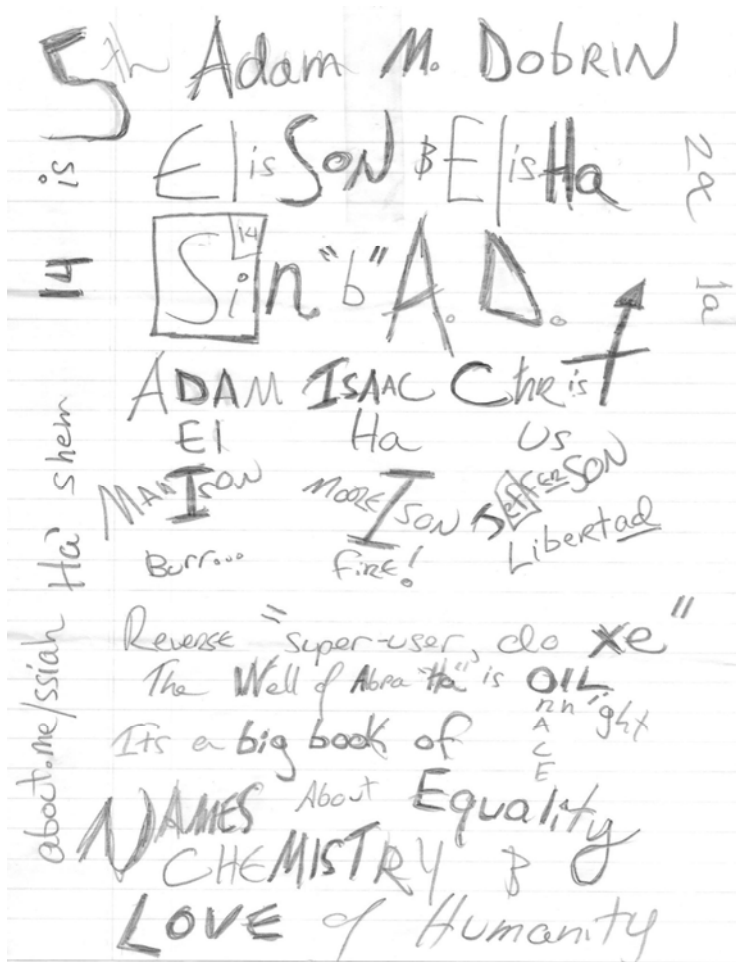 5th Adam M. DobRIN
El is SON & El is Ha
Si 14 n "b" A. D.
ADAM ISAAC Chr is
El Ha Us
MAdISON MOORE I SON JeffErSON
Burr... FiRE! Libertad
Reverse "super-user, do xe"
The Well of Abra "Ha" is OIL
Its a big book of
NAMES About Equality
CHEMISTRY &
LOVE of Humanity
about.me/ssiah Ha' shem 14 is
1a